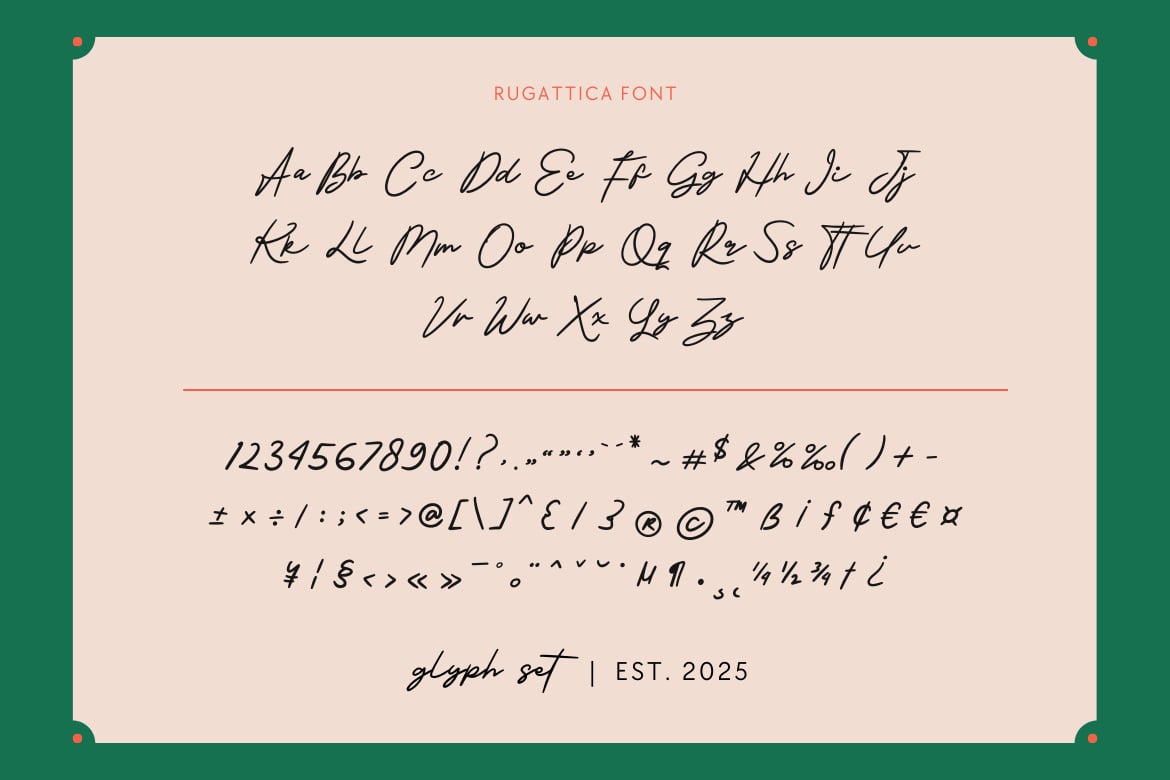 RUGATTICA FONT
Aa Bb Cc Dd Ee Ff Gg Hh Ii Jj
Kk Ll Mm Oo Pp Qq Rr Ss Tt Uu
Vv Ww Xx Yy Zz
1234567890!?,.„“”‘’*~#$&%‰()+-
±×÷/:;<=>@[\]^{/}®©™ßiƒ¢€€¤
¥¦§‹›«»¯°¨^ˇ˘˙µ¶·¼½¾†¿
glyph set | EST. 2025